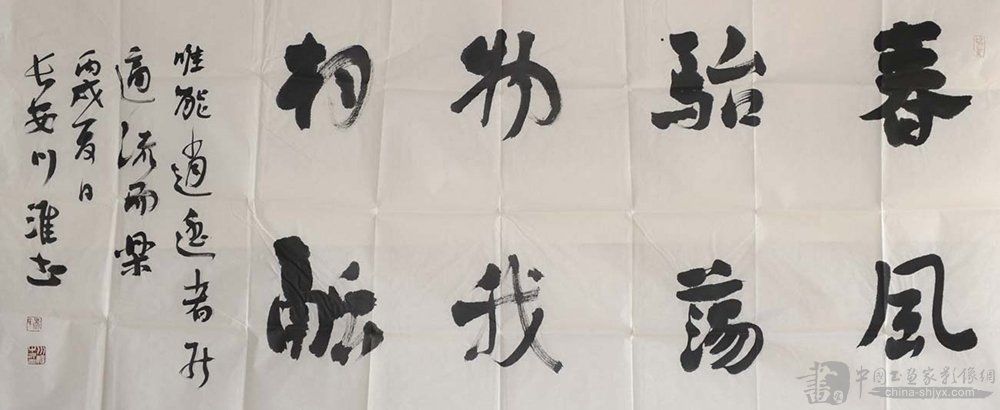 春風
駘蕩
物我
相融
唯能逍遥者
適流而樂
丙戌夏日
长安川淮
中國书画家影像網
china-shjyx.com